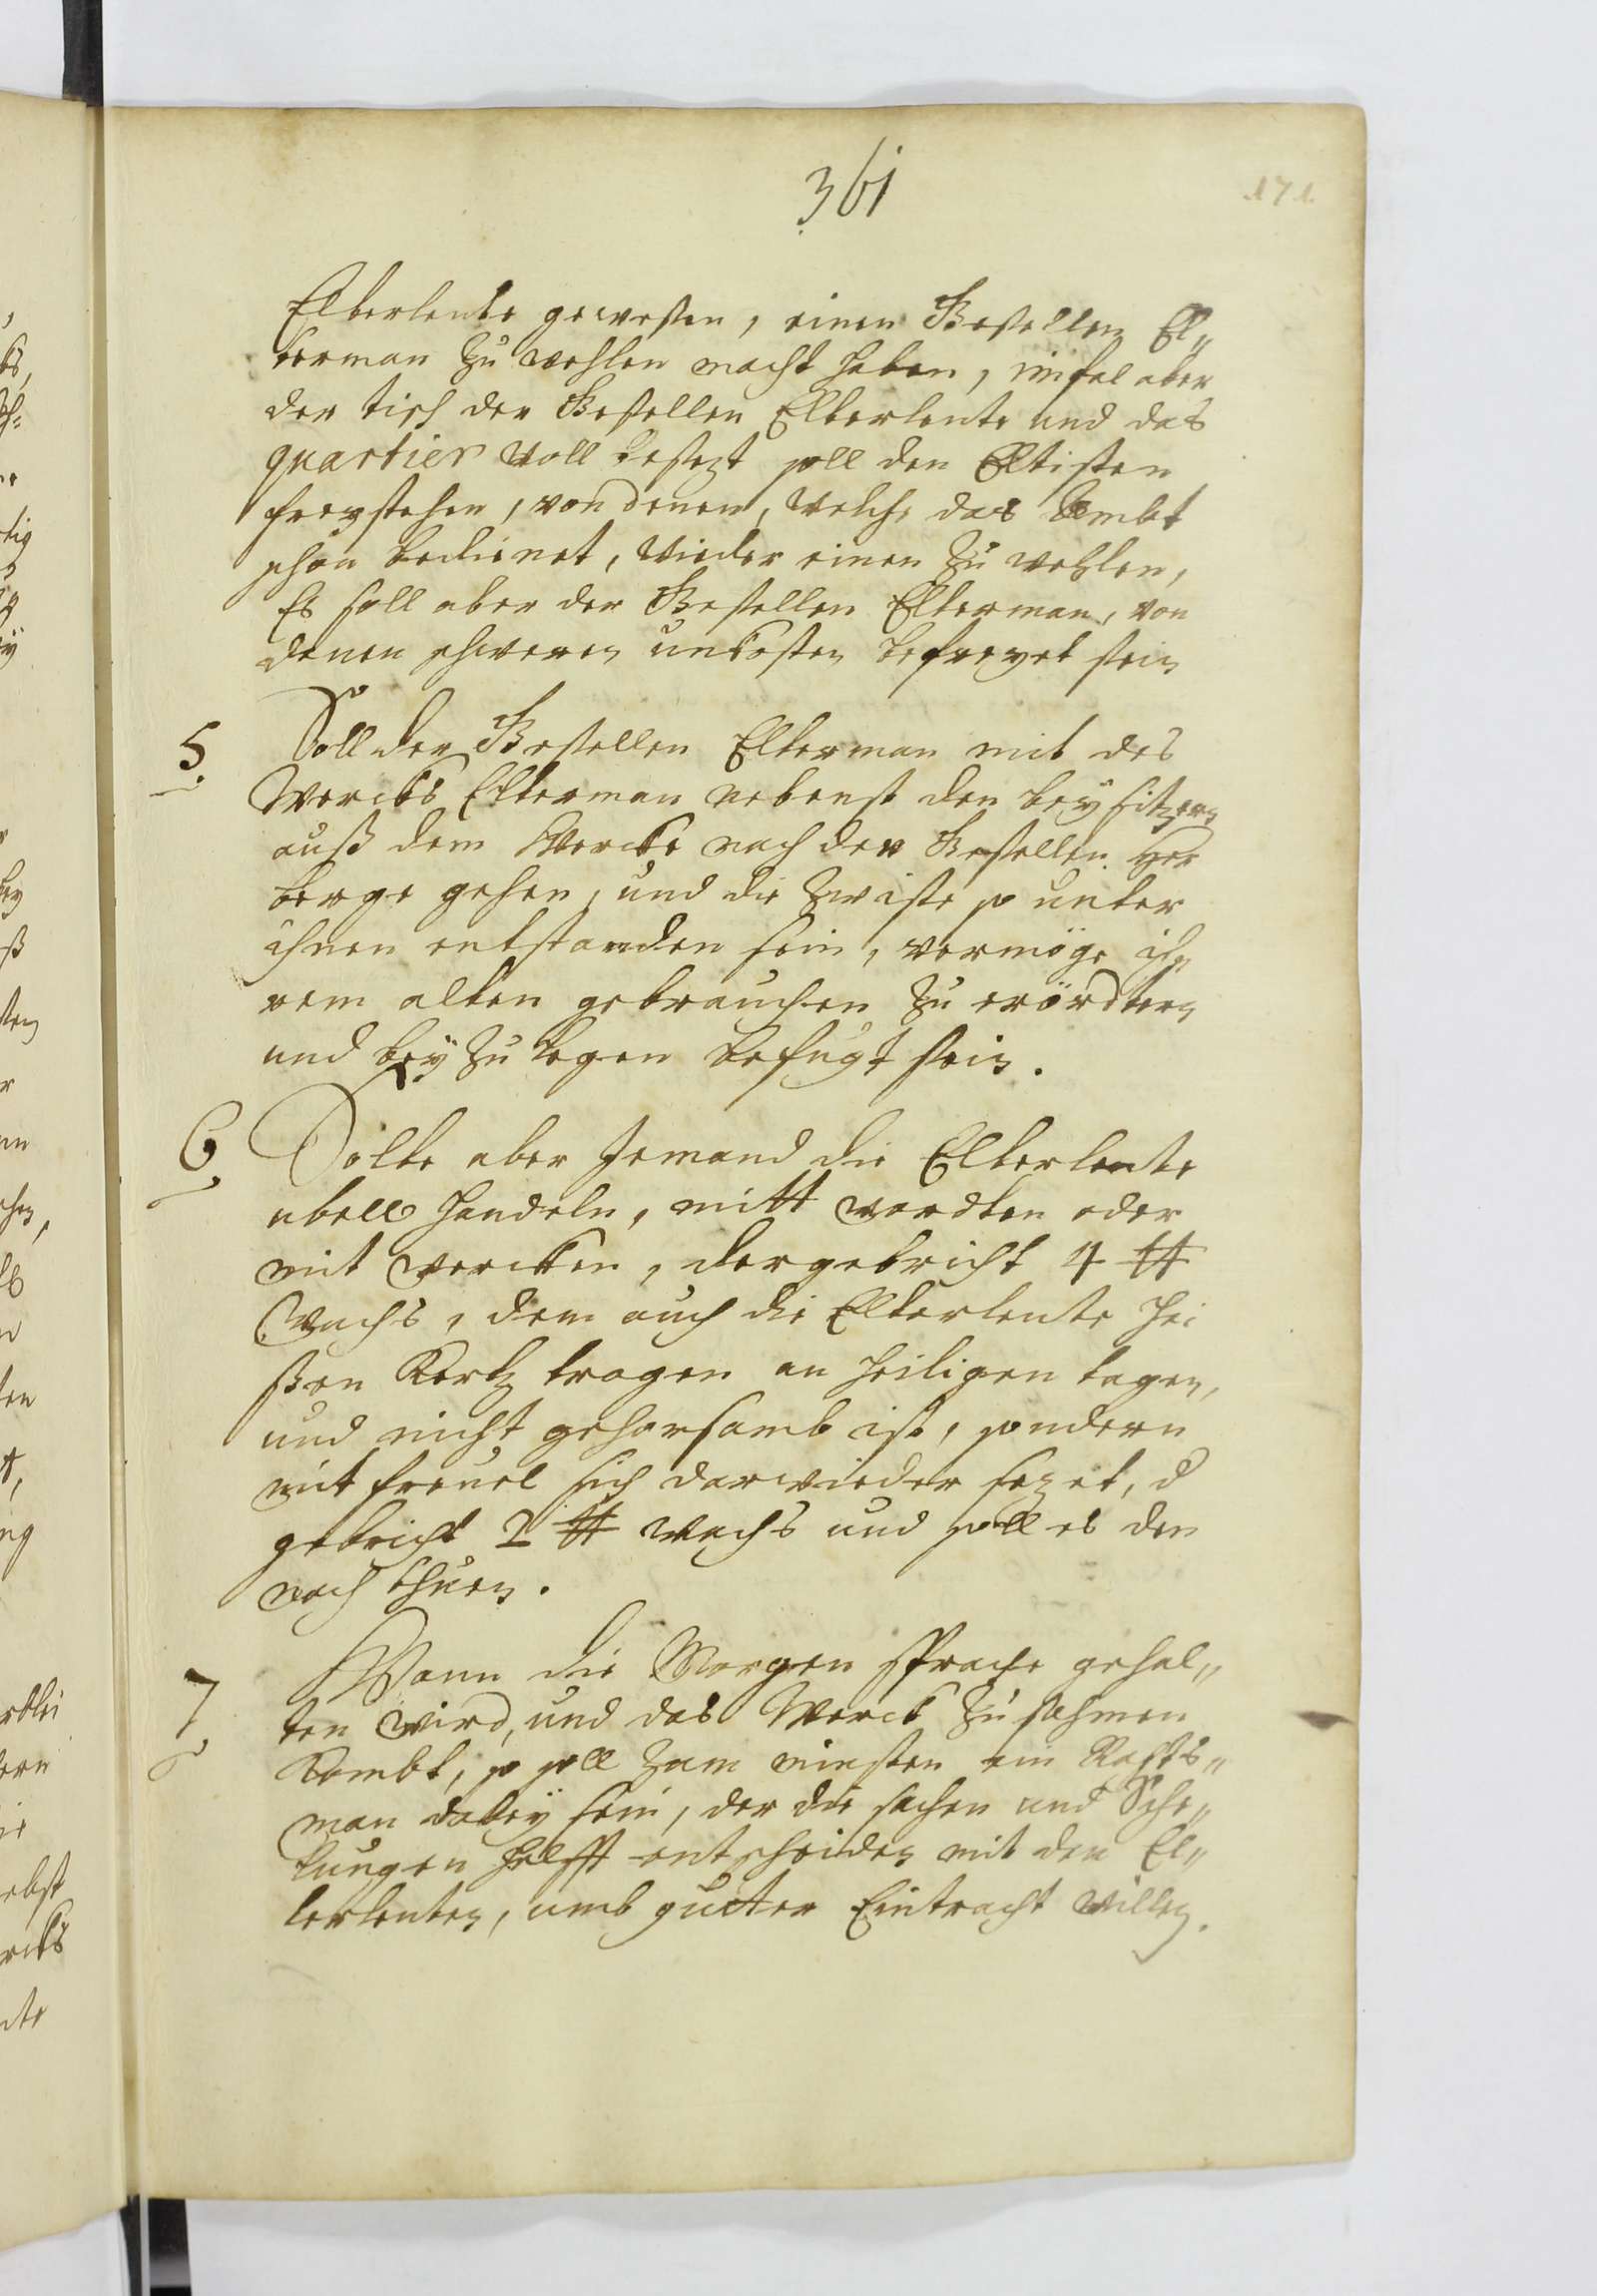 361
171.
Elterleute gewesen, einen Gesellen El„
terman zu wehlen macht haben, im fal aber
der tisch der Gesellen Elterleute und das
quartier voll besezt soll den Eltisten
freystehen, von denen, welche das Ambt
schon bedienet, wieder einen zu wehlen,
Es soll aber der Gesellen Elterman, von
denen schweren unkosten befreyet sein
5. Soll der Gesellen Elterman mit des
Wercks Elterman nebenst den beysitzern
auß dem Wercke nach der Gesellen Her
berge gehen, und die Zwiste so unter
ihnen entstanden sein, vermöge ih„
rem alten gebrauchen zu erördtern
und bey zu legen befugt sein.
6. Solte aber Jemand die Elterleute
ubell handeln, mitt wordten oder
mit wercken, der gebricht 4 ℔
Wachs, dem auch die Elterleute hei
ßen Kertz tragen an heiligen tagen,
und nicht gehorsamb ist, sondern
mit freuel sich darwieder sezet, d
gebricht 2 ℔ Wachs und soll es den
noch thuen.
7. Wann die Morgen sprache gehal„
ten wird, und das Werck zusahmen
Kombt, so soll zum minsten ein Rahts„
man dabey sein, der die sachen und Sche„
lungen hilfft entscheiden mit den El„
terleuten, umb gutter Eintracht willen.